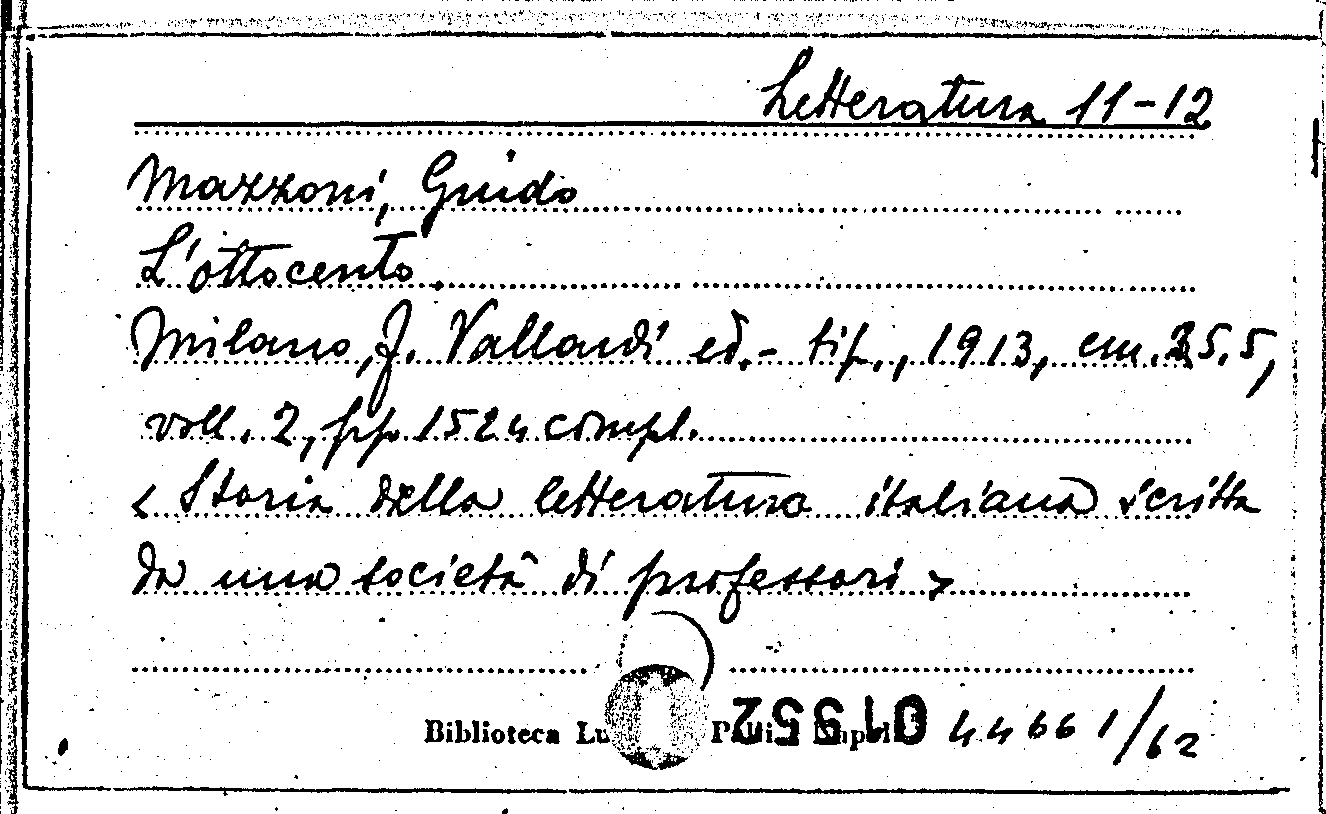 Letteratura 11-12
Mazzoni, Guido
L'ottocento.
Milano, J. Vallardi ed.-tip., 1913, cm. 25.5,
voll. 2, pp. 1524 compl.
< Storia della letteratura italiana scritta
da una società di professori >
Biblioteca 44661/62